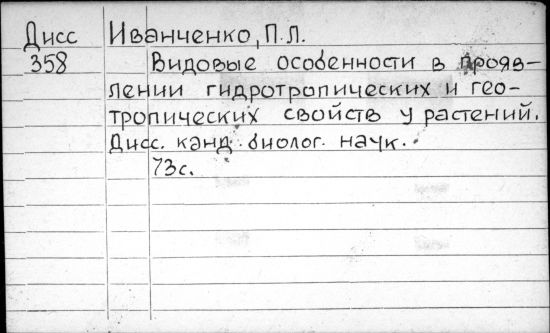 Дисс Иванченко, П.Л.
358 Видовые особенности в прояв-
лении гидротропических и гео-
тропических свойств у растений.
Дисс. канд. биолог. наук.
73с.